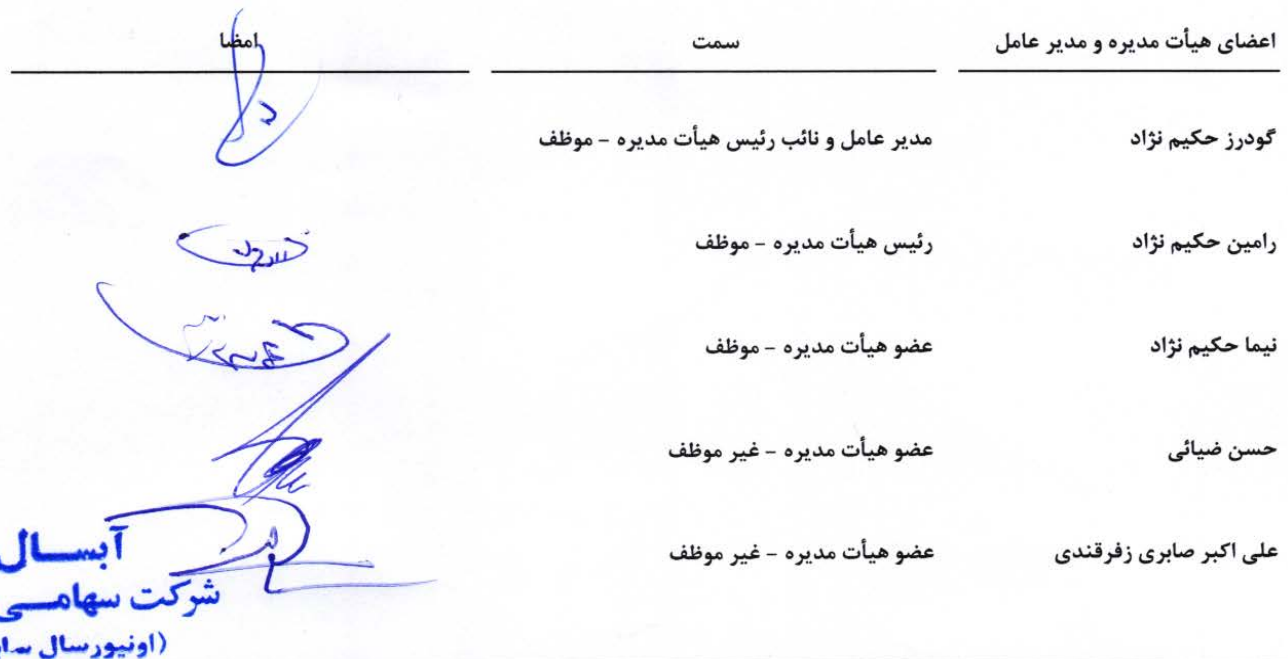 اعضای هیأت مدیره و مدیر عامل سمت امضا
گودرز حکیم نژاد مدیر عامل و نائب رئیس هیأت مدیره - موظف
رامین حکیم نژاد رئیس هیأت مدیره - موظف
نیما حکیم نژاد عضو هیأت مدیره - موظف
حسن ضیائی عضو هیأت مدیره - غیر موظف
علی اکبر صابری زفرقندی عضو هیأت مدیره - غیر موظف
آبسال
شرکت سهامی
(اونیورسال